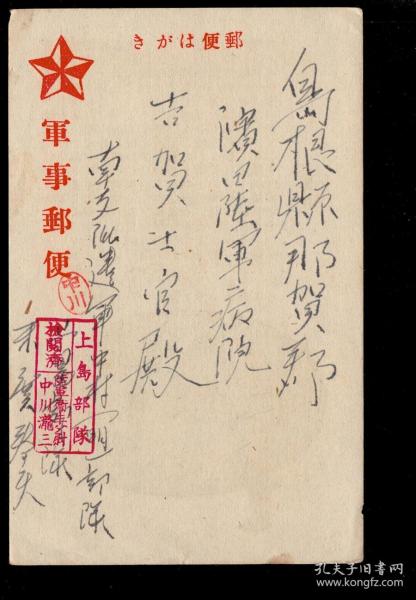 郵便はがき
軍事郵便
島根縣那賀郡
濱田陸軍病院
吉賀士官殿
南支派遣軍中村(直)部隊
中川
上島部隊
検閲濟
中川瀧三
孔夫子旧书网
www.kongfz.com